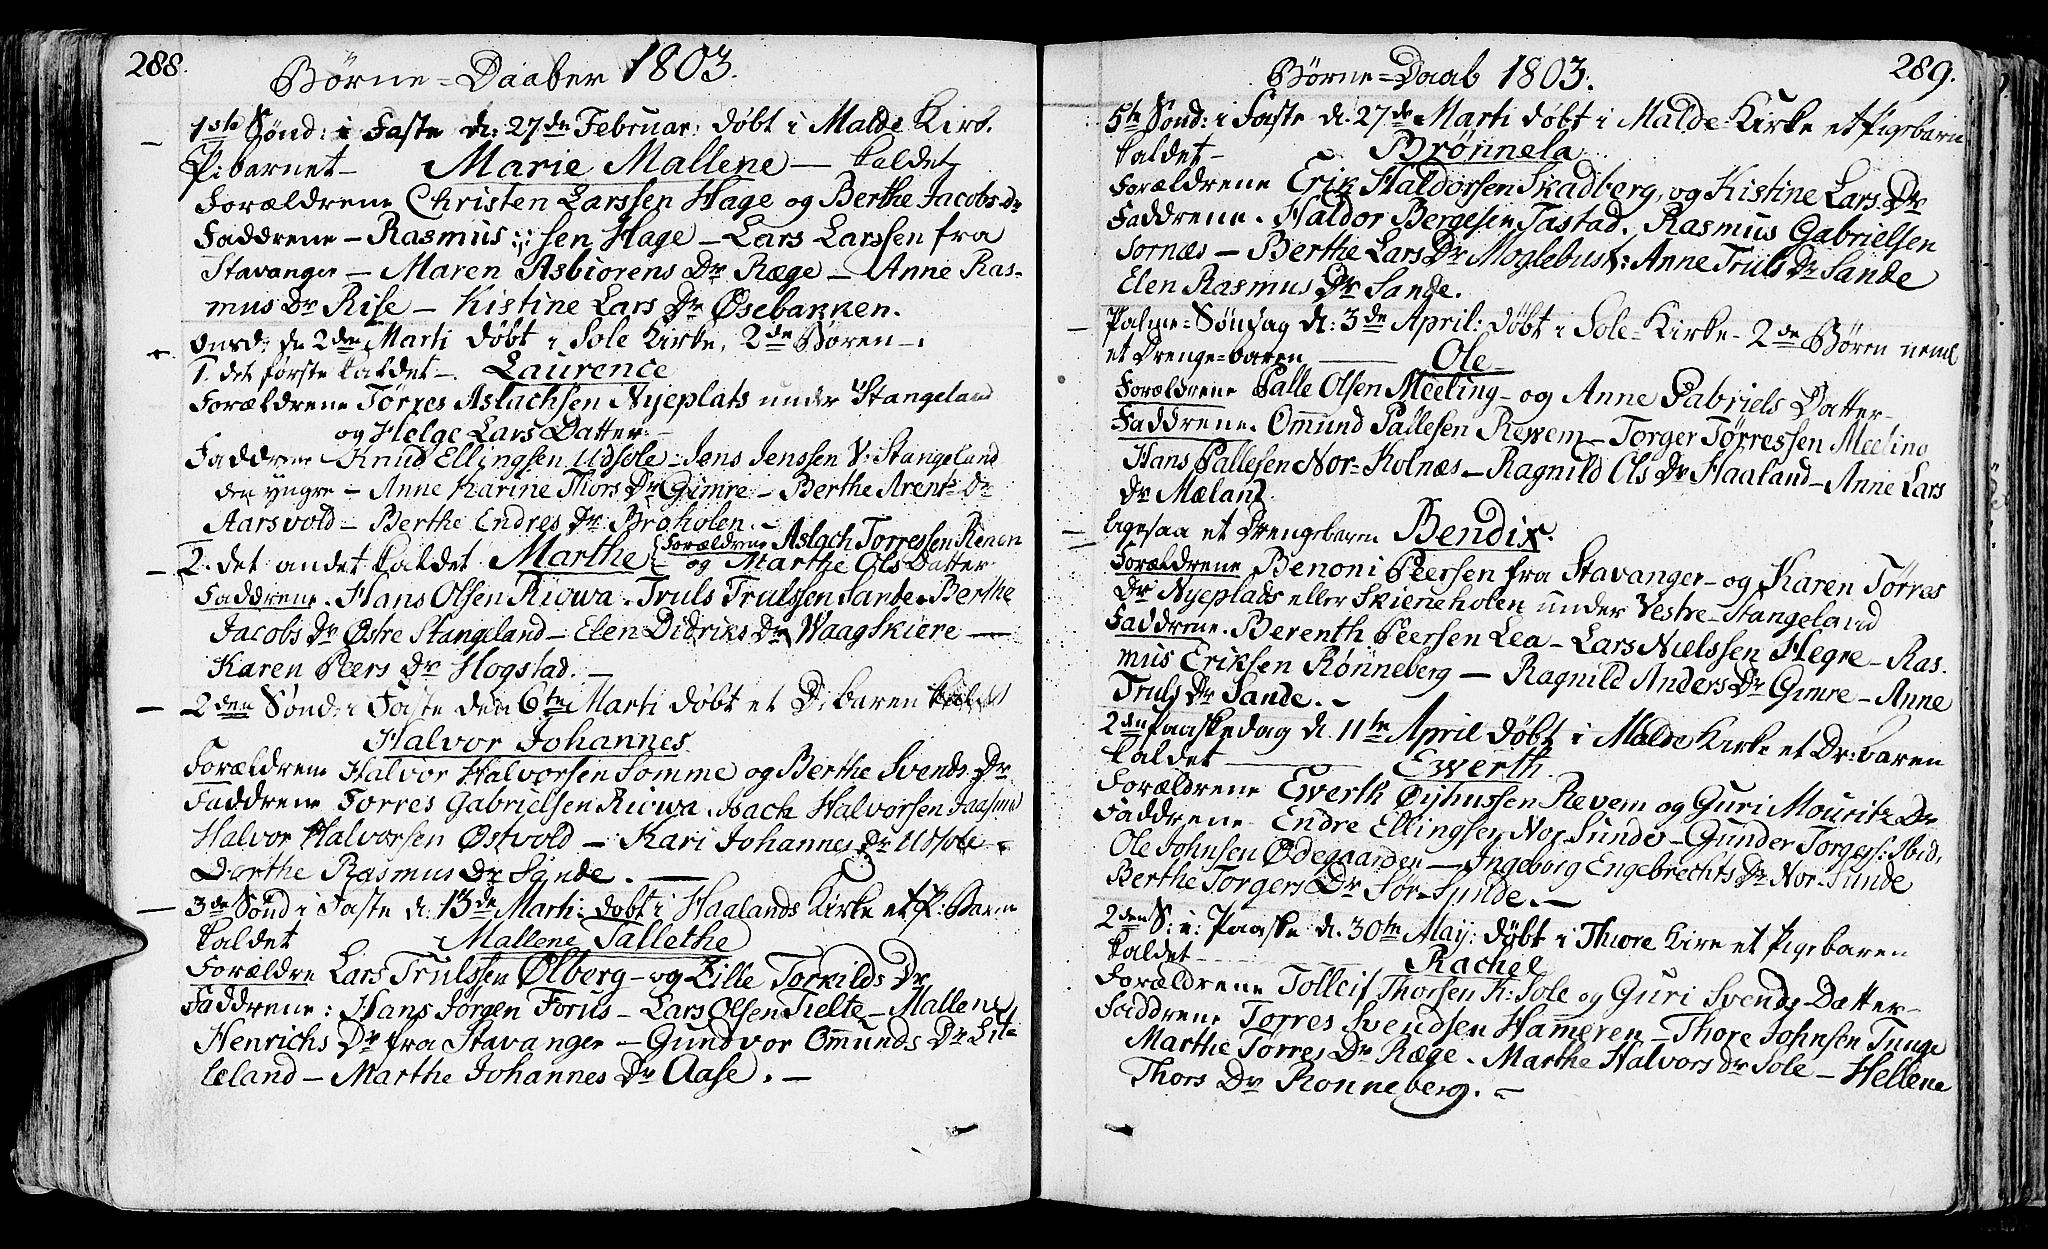 288.
Børne-Daaber 1803.
1ste Sønd: i Faste d: 27de Februar: døbt i Malde Kirk.
P: barnet - Marie Mallene - kaldet
Forældrene Christen Larssen Hage og Berthe Jacobs Dr
Faddrene - Rasmus sen Hage - Lars Larssen fra
Stavanger - Maren Asbiorens Dr Ræge - Anne Ras-
mus Dr Rise - Kistine Lars Dr Øsebakken.
Onsd: d. 2den Marti døbt i Sole Kirke, 2de Børen -.
1. det første kaldet -. Laurence
Forældrene Törres Aslachsen Nyeplats under Stangeland
og Helge Lars Datter.
Faddrene Knud Ellingsen Udsole - Jens Jenssen V: Stangeland
den yngre - Anne Karine Thors Dr Gimre - Berthe Arent Dr
Aarsvold - Berthe Endres Dr Broholen. -
2. det andet kaldet Marthe - Forældrene Aslach Torressen Renen
og Marthe Ols Datter
Faddrene. Hans Olsen Riowa. Truls Trulssen Sande. Berthe
Jacobs Dr Østre Stangeland - Elen Didriks Dr Waagskiere -
Karen Peers Dr Hogstad. -
2den Sønd: i Faste den 6te Marti døbt et D. baren kaldet
Halvor Johannes
Forældrene Halvor Halvorsen Somme og Berthe Svends Dr
Faddrene Torres Gabrielsen Riowa. Isach Halvorsen Jaasund
Halvor Halvorsen Østvold - Kari Johannes Dr Udsole -
Dorthe Rasmus Dr Sande. -
3de Sønd i Faste d. 13de Marti: døbt i Haalands Kirke et P: Baren
kaldet Mallene Tallethe
Forældre Lars Trulssen Ølberg - og Lille Torkilds Dr
Faddrene: Hans Jörgen Forus - Lars Olsen Tielte - Mallene
Henrichs Dr fra Stavanger - Gundvor Omunds Dr Lil-
leland - Marthe Johannes Dr Aase. -
289.
Børne-Daab 1803.
5te Sønd: i Faste d. 27de Marti døbt i Malde Kirke et Pigebarn
kaldet - Brönnela
Forældrene Erik Haldorsen Skadberg, og Kistine Lars Dr
Faddrene. Haldor Bergesen Tastad. Rasmus Gabrielsen
Sornæs - Berthe Lars Dr Moglebust: Anne Truls Dr Sande
Elen Rasmus Dr Sande.
Palme-Søndag d: 3de April: døbt i Sole-Kirke - 2de Børen neml
et Drenge-baren - Ole
Forældrene Palle Olsen Meeling - og Anne Gabriels Datter -
Faddrene. Omund Pallesen Rewem - Torger Törressen Meeling
Hans Pallesen Nor-Kolnæs - Ragnild Ols Dr Haaland - Anne Lars
Dr Mæland
ligesaa et Drengebaren Bendix.
Forældrene Benoni Peersen fra Stavanger - og Karen Törres
Dr Nyeplads eller Skieneholen under Vestre-Stangeland
Faddrene. Berenth Peersen Lea - Lars Nielssen Hegre - Ras.
mus Eriksen Rönneberg - Ragnild Anders Dr Gimre - Anne
Truls Dr Sande. -
2den Paaskedag d. 11te April døbt i Malde Kirke et Dr: baren
kaldet - Ewerth
Forældrene Ewerth Öijhussen Revem og Guri Mouritz Dr
Faddrene Endre Ellingsen Nor-Sunde - Gunder Torgers: Ibid.
Ole Johnsen Ødegaarden - Ingeborg Engebrechts Dr Nor-Sunde
Berthe Torgers Dr Sør-Sunde. -
2den S: e: Paaske d. 30te May: døbt i Thiore Kirk et Pigebaren
kaldet - Rachel
Forældrene Tolleif Thorsen K: Sole og Guri Svends Datter -
Faddrene Torres Svendsen Hameren - Thore Johnsen Tunge
Marthe Torres Dr Ræge - Marthe Halvors dr Sole - Hellene
Thors Dr Ronneberg. -